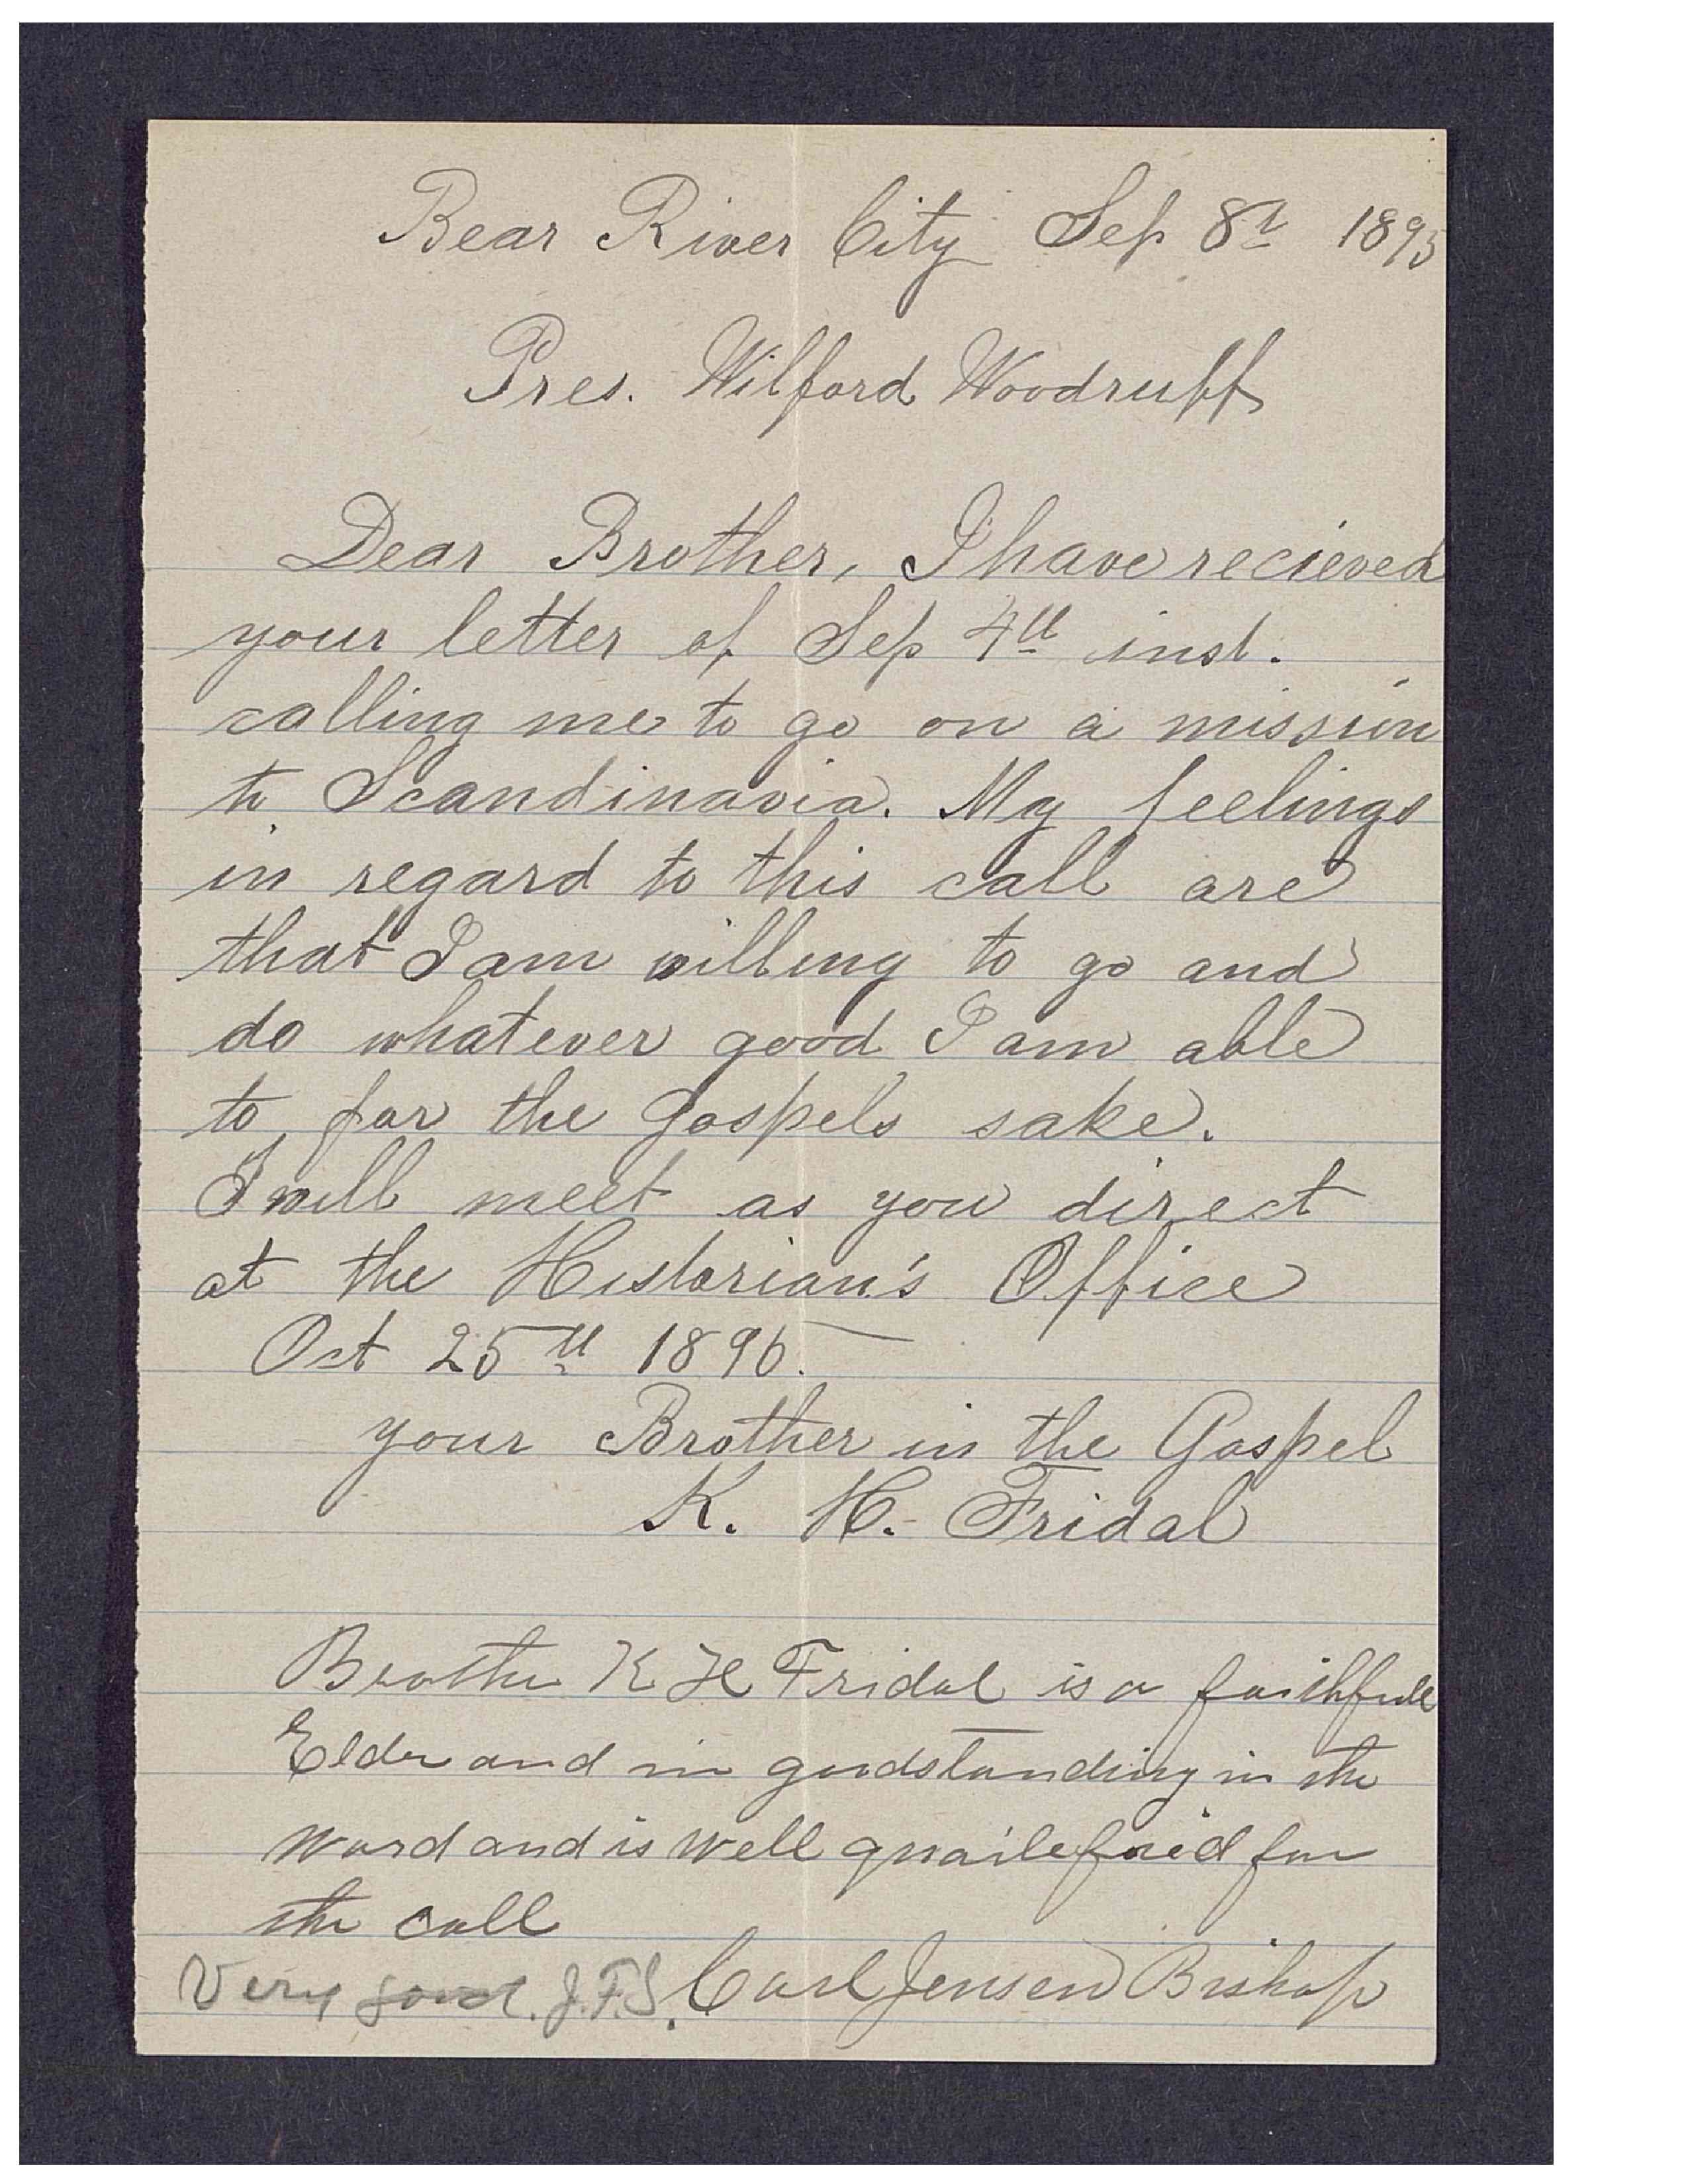 Bear River City Sep 8th 1895
Pres. Wilford Woodruff
Dear Brother, I have recieved
your letter of Sep 4th inst.
calling me to go on a mission
to Scandinavia. My feelings
in regard to this call are
that I am willing to go and
do whatever good I am able
to for the Gospels sake.
I will meet as you direct
at the Historian's Office
Oct 25th 1895.
your Brother in the Gospel
K. H. Fridal
Brother K H Fridal is a faithfull
Elder and in goodstanding in the
Ward and is well quailefied for
the call
Carl Jensen Bishop
Very good. J.F.S.